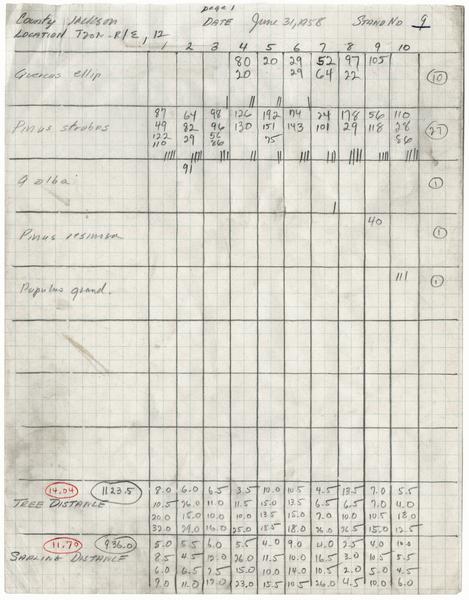 page 1
County Jackson DATE June 31, 1958 STAND NO 9
LOCATION T20N-R1E, 12
1 2 3 4 5 6 7 8 9 10
80 20 29 52 97 105
Quercus ellip 20 29 64 22 10
87 64 98 126 192 74 24 178 56 110
Pinus strobus 49 82 96 130 151 143 101 29 118 28 27
122 29 56 75 86
110 86
91
Q alba 1
40
Pinus resinosa 1
111
Populus grand. 1
14.04 1123.5 8.0 6.0 6.5 3.5 10.0 10.5 4.5 13.5 7.0 5.5
TREE DISTANCE 10.5 26.0 11.0 11.5 15.0 13.5 6.5 6.5 7.0 4.0
20.0 15.0 10.0 10.0 13.5 15.0 7.0 10.0 10.5 18.0
32.0 29.0 16.0 25.0 15.5 18.0 26.0 26.5 15.0 12.5
11.70 936.0 5.0 5.5 6.0 5.5 4.0 9.0 4.0 2.5 4.0 10.0
SAPLING DISTANCE 8.5 4.5 12.0 26.0 11.5 10.0 16.5 3.0 10.5 5.5
6.0 6.5 7.5 15.0 10.5 14.0 10.5 2.0 5.0 4.5
9.0 11.0 17.0 23.0 15.5 10.5 26.0 4.5 10.0 6.0